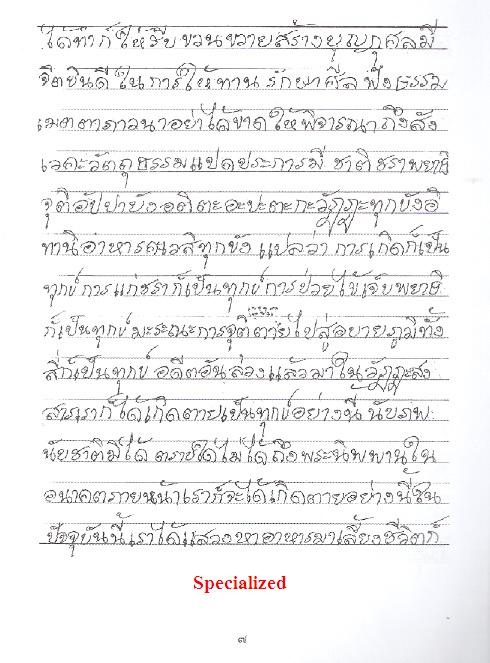 ได้ทำก็ให้รีบขวนขวายสร้างบุญกุศลมี
จิตยินดีในการให้ทานรักษาศีลฟังธรรม
เมตตาภาวนาอย่าได้ขาดให้พิจารณาถึงสัง
เวคะวัตถุธรรมแปดประการมี ชาติชราพยาธิ
จุติอัปปายัง อตีตะอะปะตะกะวัฏฏะทุกขังอิ
ทานิอาหารแวสิทุกขัง แปลว่า การเกิดก็เป็น
ทุกข์ การแก่ชราก็เป็นทุกข์ การป่วยไข้เจ็บพยาธิ
ก็เป็นทุกข์ มะระณะการจุติตายไปสู่อบายภูมิทั้ง
สี่ก็เป็นทุกข์ อดีตอันล่วงแล้วมาในวัฏฏะสง
สารเราก็ได้เกิดตายเป็นทุกข์อย่างนี้ นับภพ
นับชาติมิได้ ตราบใดไม่ได้ถึงพระนิพพานใน
อนาคตภายหน้าเราก็จะได้เกิดตายอย่างนี้ใน
ปัจจุบันนี้เราได้แสวงหาอาหารมาเลี้ยงชีวิตก็
Specialized
๗